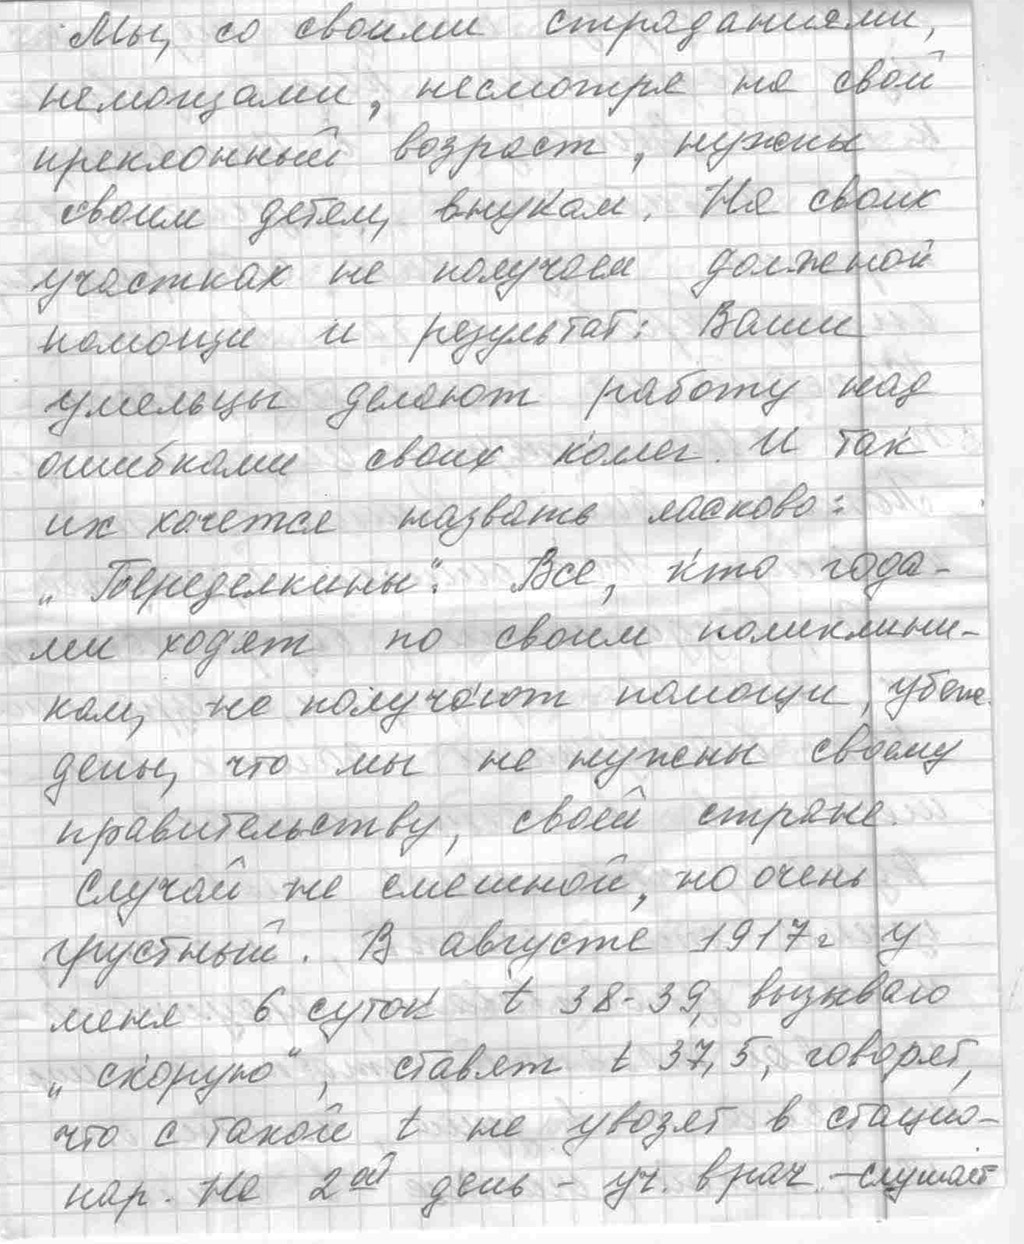 Мы, со своими страданиями,
немощами, несмотря на свой
преклонный возраст, нужны
своим детям, внукам. На своих
участках не получаем должной
помощи и результат: Ваши
умельцы делают работу над
ошибками своих колег. И так
их хочется назвать ласково:
„Переделкины". Все, кто года-
ми ходят по своим поликлини-
кам, не получают помощи, убеж-
дены, что мы не нужны своему
правительству, своей стране.
Случай не смешной, но очень
грустный. В августе 1917г у
меня 6 суток t 38-39, вызываю
„скорую", ставят t 37,5, говорят,
что с такой t не увозят в стацио-
нар. На 2ой день - уч. врач - слушает